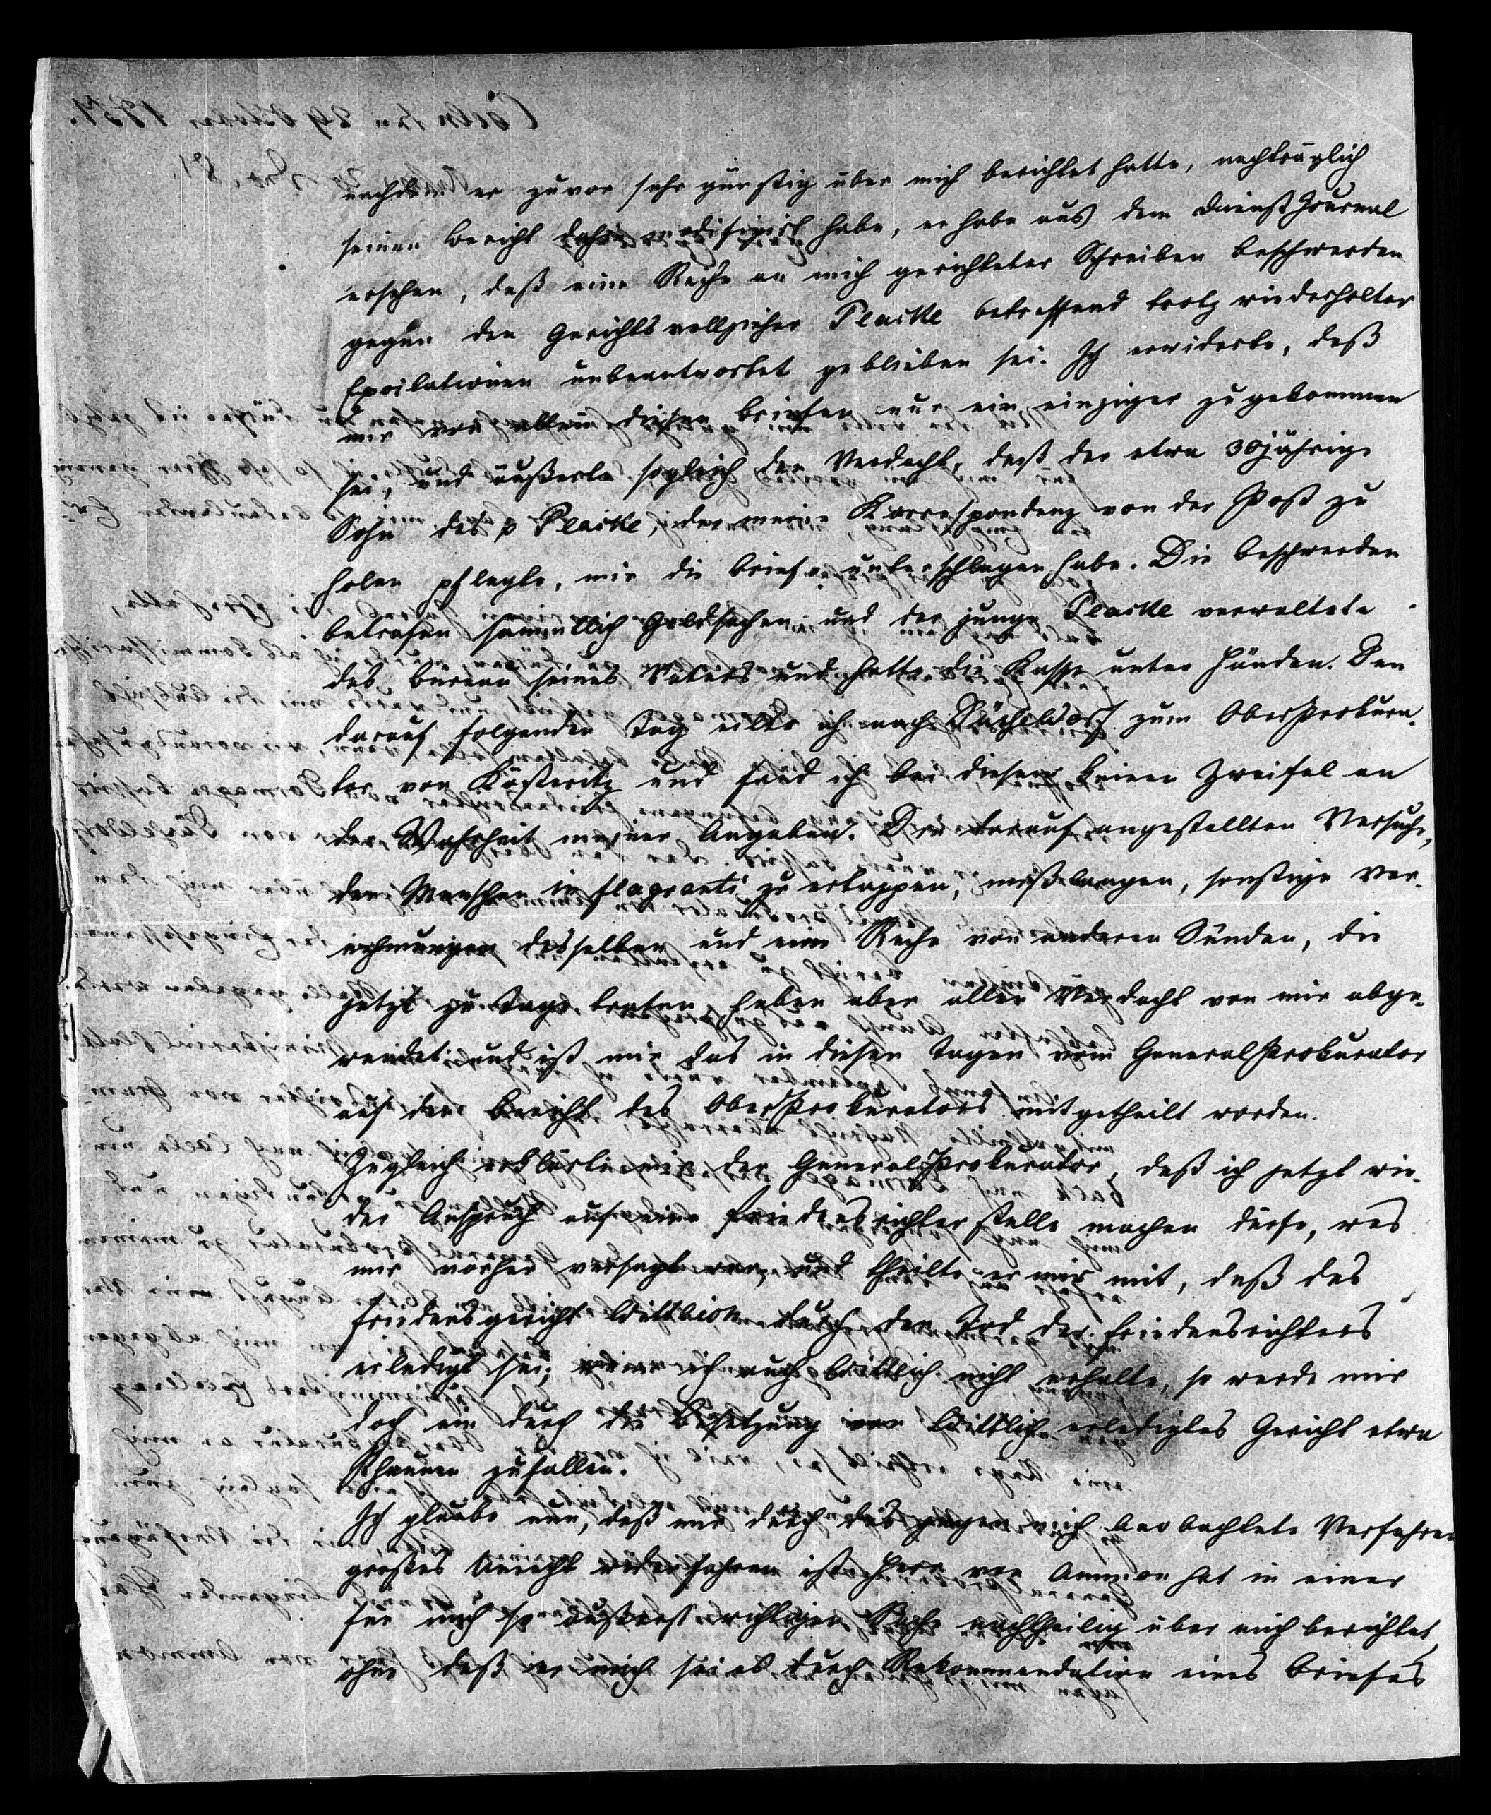 nachdem er zuvor sehr günstig über mich berichtet hatte, nachträglich
seinen Bericht dahin modifizirt habe, er habe aus dem Dienst Journal
ersehen, daß eine Reihe an mich gerichteter Schreiben Beschwerden
gegen den Gerichtsvollzieher Placke betreffend trotz wiederholter
Excitationen unbeantwortet geblieben sei. Ich erwiderte, daß
mir von allen diesen Briefen nur ein einziger zugekommen
sei, und äußerte sogleich den Verdacht, daß der etwa 30jährige
Sohn des p Placke, der meine Korrespondenz von der Post zu
holen pflegte, mir die Briefe unterschlagen habe. Die Beschwerden
betrafen sämmtlich Geldsachen und der junge Placke verwaltete
das Bureau seines Vaters und hatte die Kasse unter Händen. Den
darauf folgenden Tag eilte ich nach Düsseldorf zum OberProkura-
tor von Kösteritz und fand ich bei diesem keinen Zweifel an
der Wahrheit meiner Angaben. Die darauf angestellten Versuche,
den Menschen in flagranti zu ertappen, mißlangen, sonstige Ver-
nehmungen desselben und eine Reihe von anderen Sünden, die
jetzt zu Tage traten, haben aber allen Verdacht von mir abge-
wendet und ist mir das in diesen Tagen vom GeneralProkurator
auf den Bericht des OberProkurators mitgetheilt worden.
Zugleich erklärte mir der GeneralProkurator, daß ich jetzt wie-
der Anspruch auf eine Friedensrichterstelle machen dürfe, was
mir vorher versagt war, und theilte er mir mit, daß das
Friedensgericht Wittlich durch den Tod des Friedensrichters
erledigt sei; wenn ich auch Wittlich nicht erhalte, so werde mir
doch ein durch die Besetzung von Wittlich erledigtes Gericht etwa
Rhaunen zufallen.
Ich glaube nun, daß mir durch das gegen mich beobachtete Verfahren
großes Unrecht widerfahren ist. Herr von Ammon hat in einer
für mich so äußerst wichtigen Sache nachtheilig über mich berichtet,
ohne daß er mich sei es durch Rekommendation eines Briefes